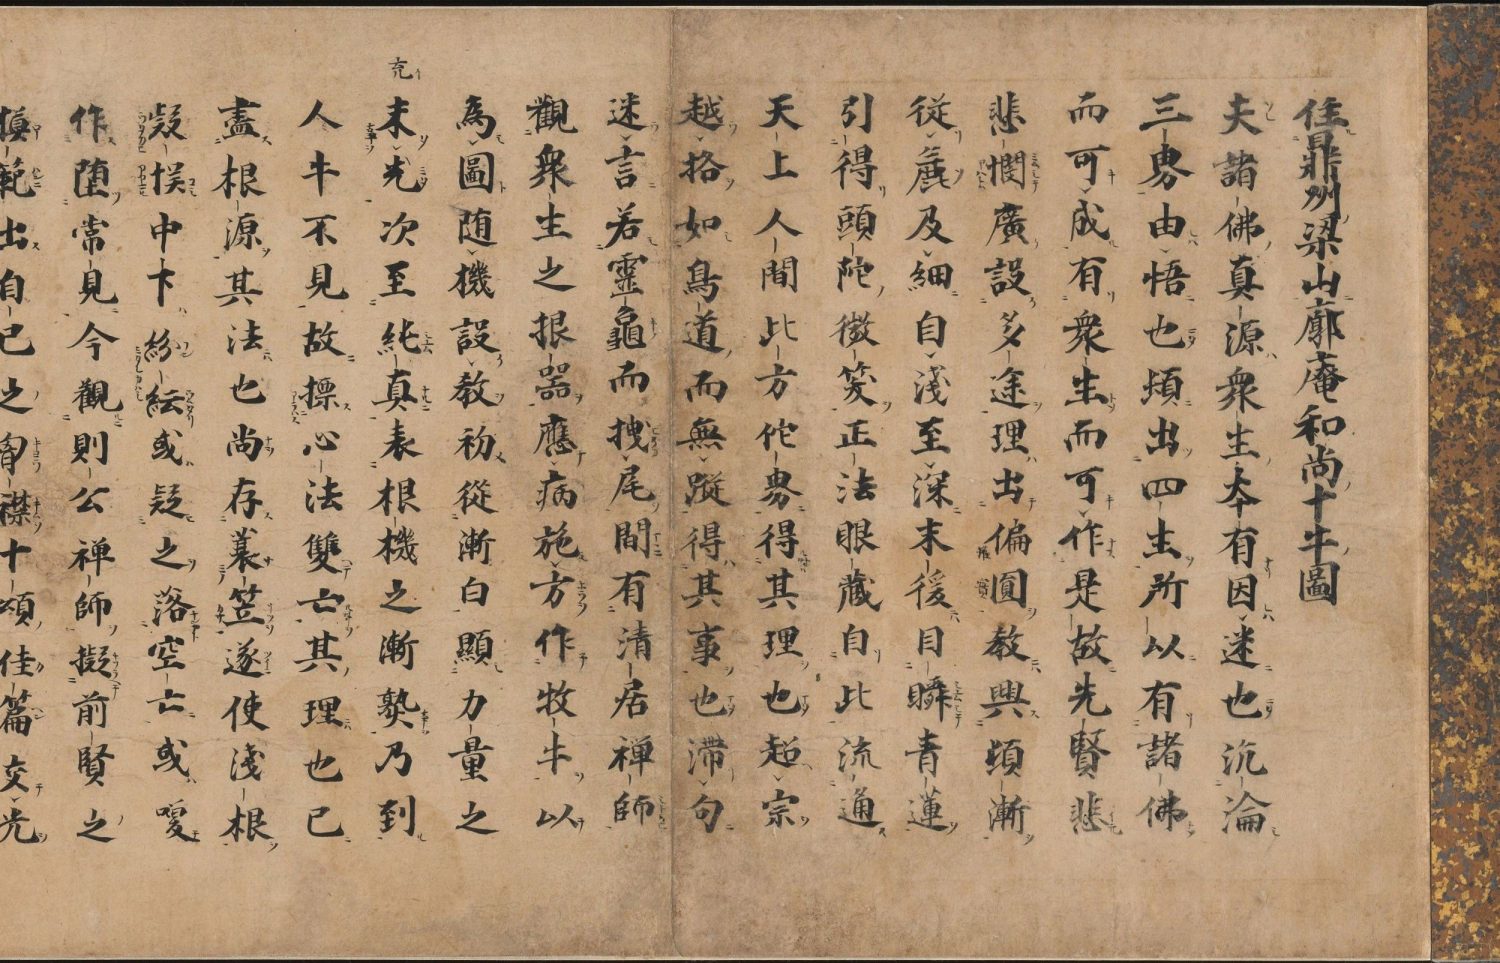 住鼎州梁山廓庵和尚十牛圖
夫諸佛真源衆生本有因迷也沉淪
三界由悟也頓出四生所以有諸佛
而可成有衆生而可作是故先賢悲
悲憫廣設多途理出偏圓教興頓漸
従麁及細自淺至深末後目瞬青蓮
引得頭陀微笑正法眼藏自此流通
天上人間此方佗界得其理也超宗
越格如鳥道而無蹤得其事也滯句
迷言若靈龜而拽尾間有清居禅師
觀衆生之根器應病施方作牧牛以
為圖随機設教初従漸白顯力量之
未充次至純真表根機之漸熟乃到
人牛不見故摽心法雙亡其理也已
盡根源其法也尚存蓑笠遂使淺根
疑悞中下紛紜或疑之落空亡或嗄
作堕常見今觀則公禅師擬前賢之
模範出自己之胷襟十頌佳篇交光
充